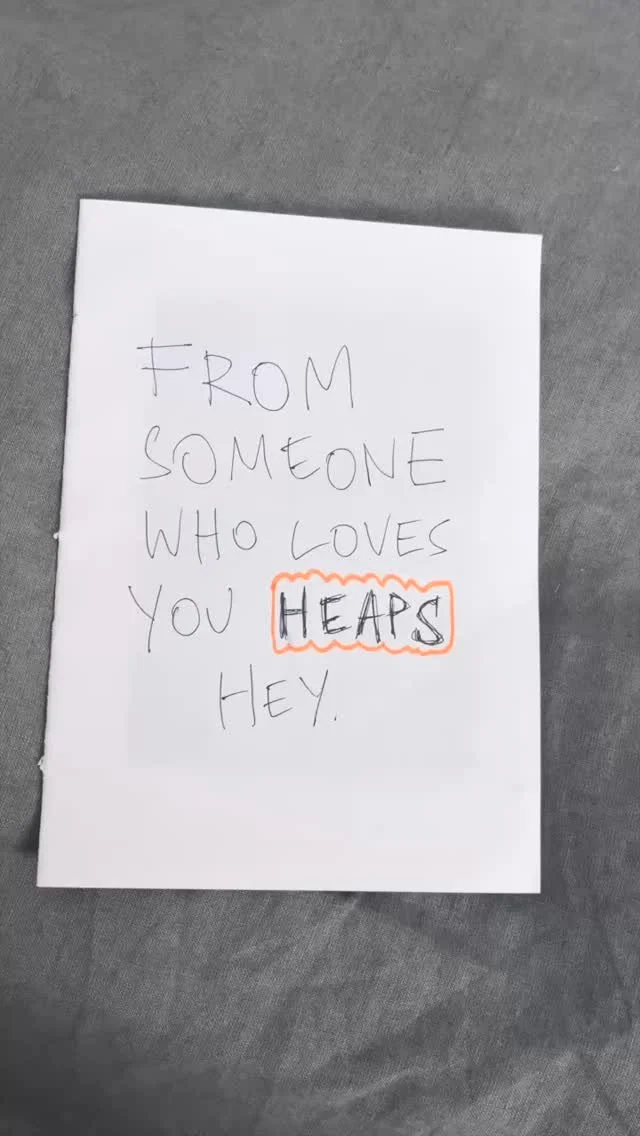 FROM
SOMEONE
WHO LOVES
YOU HEAPS
HEY.